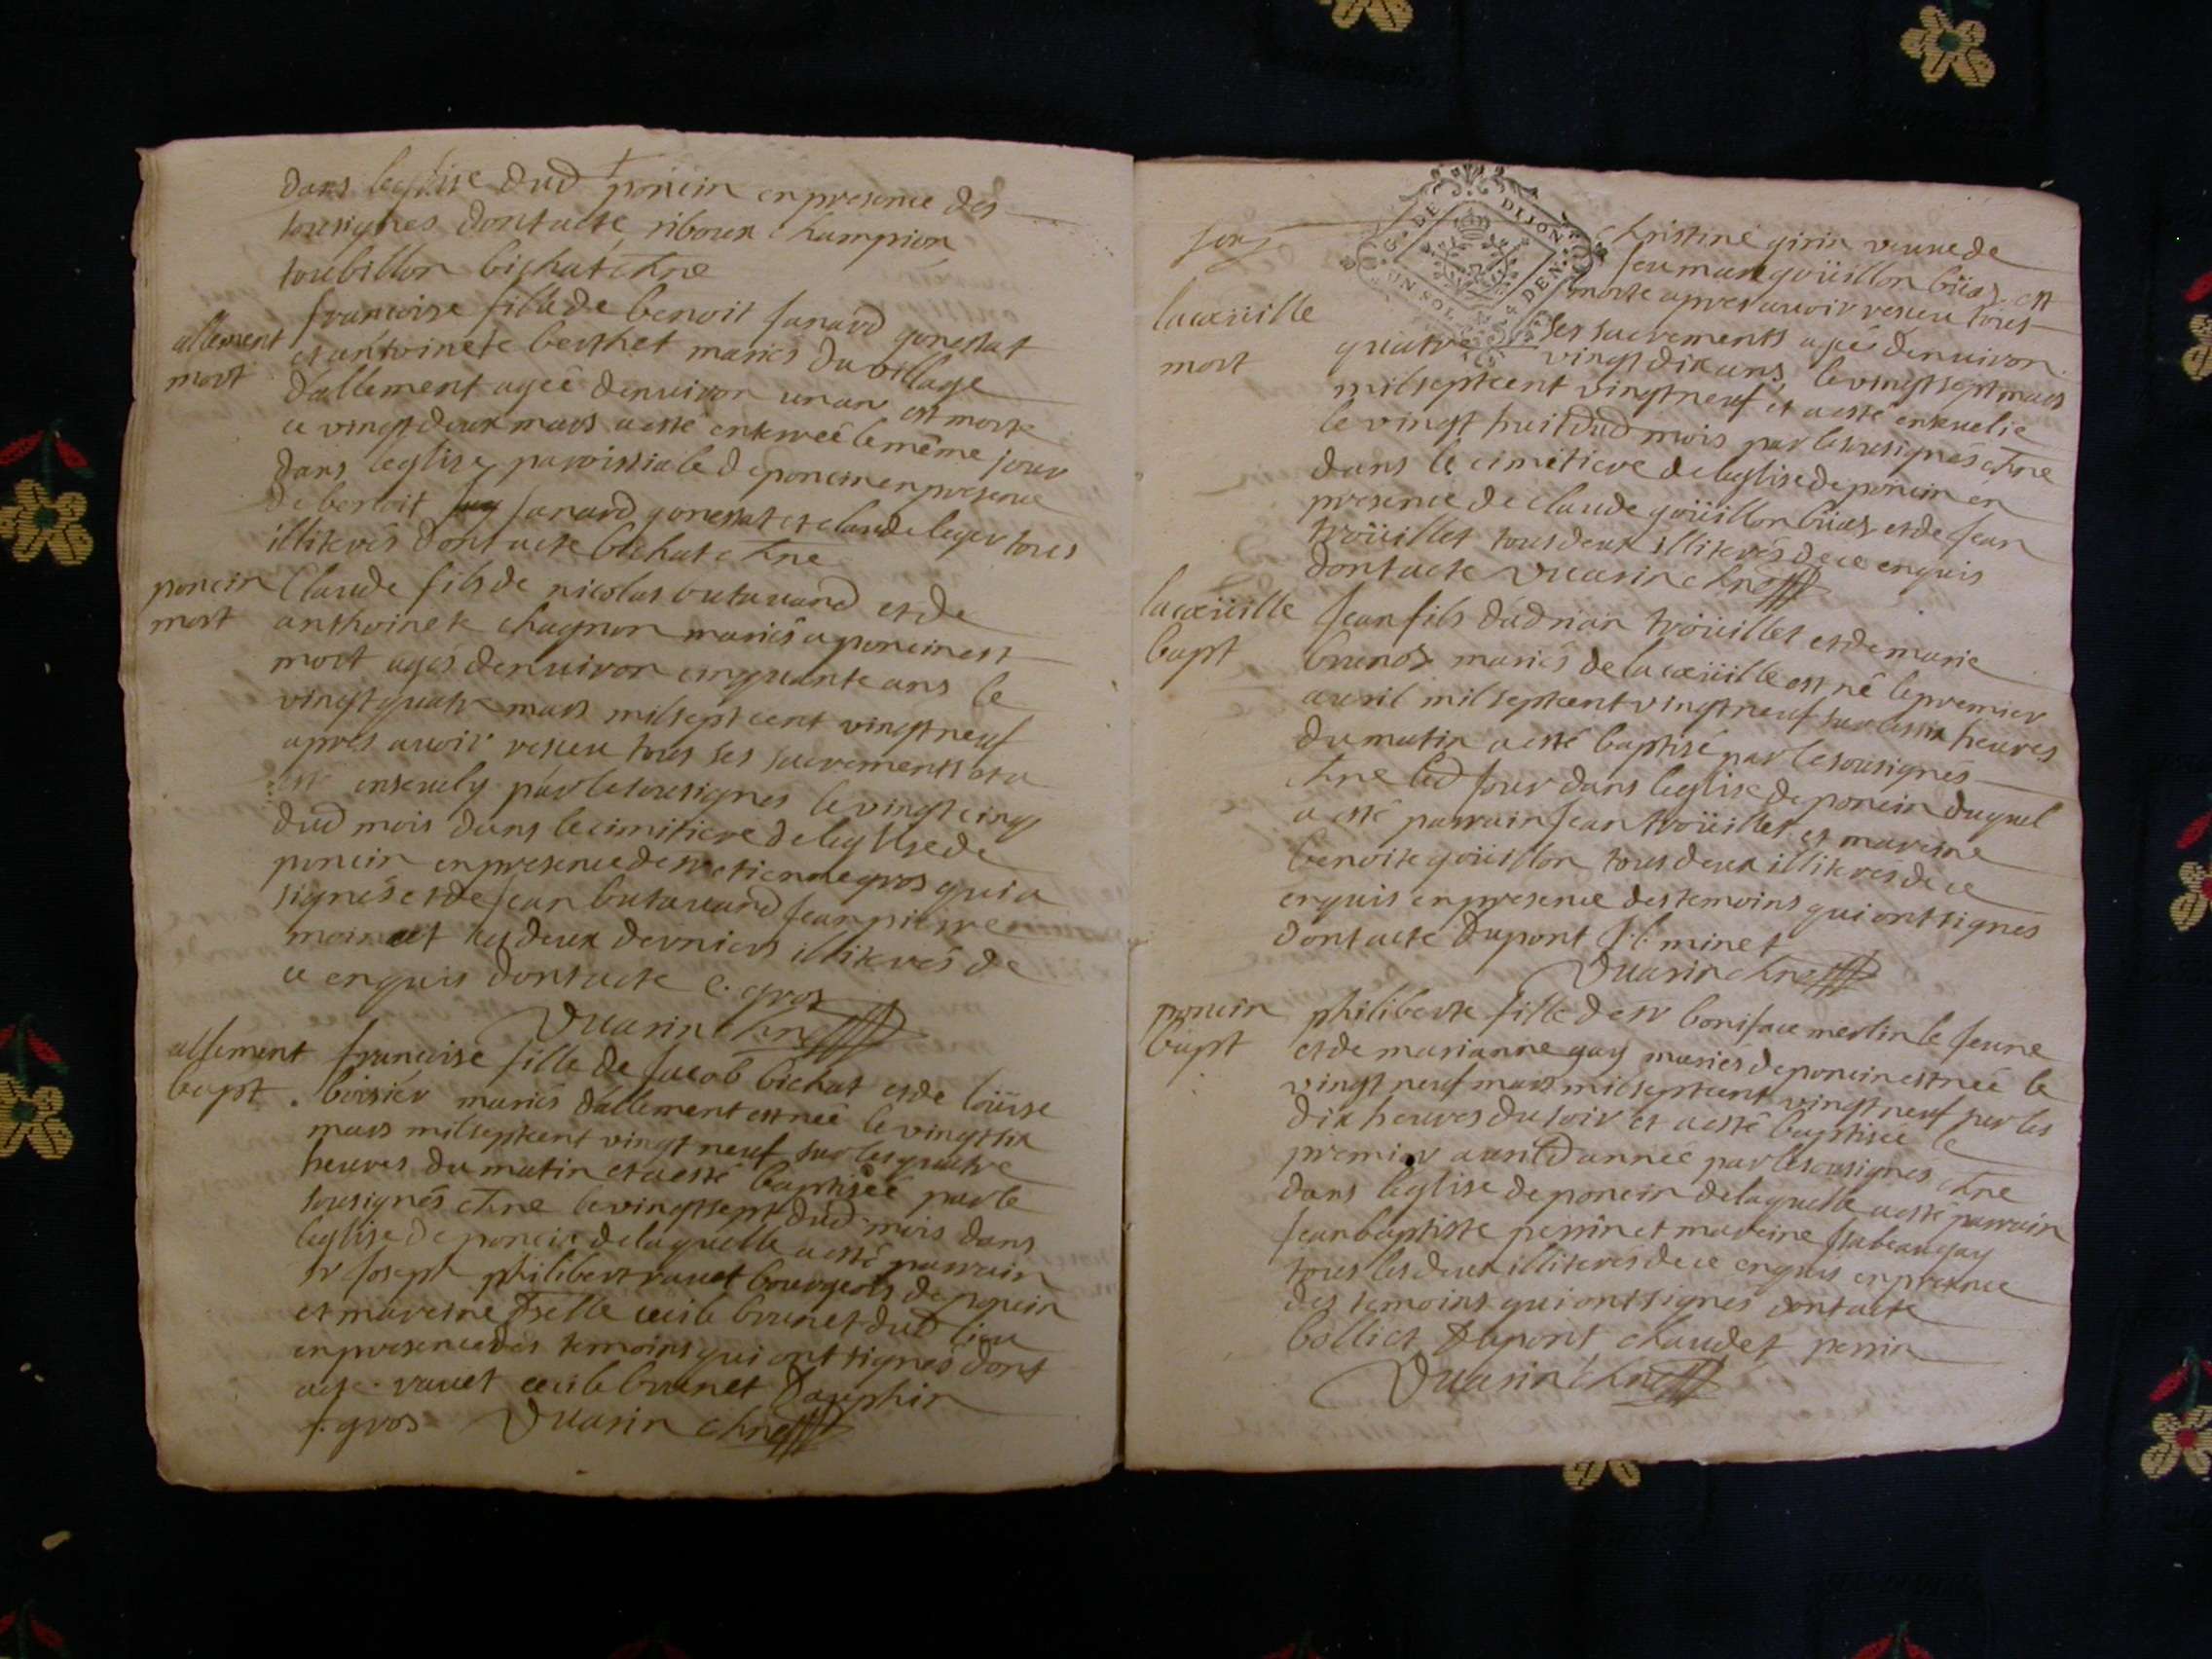 dans leglise dud poncin en presence des
sousignes dont acte riboux champion
toubillon bichat chne
allement
mort
francoise fille de benoit janard gonessat
et anthoinete berthet mariés du village
dallement ageé denuiron un an est morte
ce vingt deux mars a esté enterreé le même jour
dans leglise paroissiale de poncin en presence
de benoit janard gonessat et claude leger tous
illiterés dont acte bichat chne
poncin
mort
Claude fils de nicolas butavand et de
anthoinete chagnon mariés a poncin est
mort agés denuiron cinquante ans le
vingt quatre mars mil sept cent vingt neuf
apres auoir reseu tous ses sacrements et a
esté enseuely par le sousignes le vingt cinq
dud mois dans le cimitiere de leglise de
poncin en presence de sr etienne gros qui a
signés et de jean butavand jean pierre
les deux derniers illiterés de
ce enquis dont acte e. gros
Vuarin chne
allement
bapt.
francoise fille de jacob bichat et de loüise
boisier mariés dallement est neé le vingt six
mars mil sept cent vingt neuf sur les quatre
heures du matin et a esté baptiseé par le
sousignés chne le vingt sept dud mois dans
leglise de poncin de laquelle a esté parrain
sr joseph philibert ravet bourgeois de poncin
et mareine dselle cecile brunet dud lieu
en presence des temoins qui ont signés dont
acte. ravet cecile brunet Dauphin
j. gros Vuarin chne
G. DE DIJON
DEN
UN SOL
lacüeille
mort
christine girin veuue de
feu marc goüillon büaz est
morte apres auoir reseu tous
ses sacrements ageé denuiron
quatre vingt dix ans le vingt sept mars
mil sept cent vingt neuf et a esté enseuelie
le vingt huit dud mois par le sousignés chne
dans le cimetiere de leglise de poncin en
presence de claude goüillon büaz et de jean
troüillet tous deux illiterés de ce enquis
dont acte Vuarin chne
lacüeille
bapt
jean fils dadrian troüillet et de marie
brunos mariés de lacüeille est né le premier
auril mil sept cent vingt neuf sur les six heures
du matin a esté baptisé par le sousignés
chne led jour dans leglise de poncin duquel
a esté parrain jean troüillet et mareine
benoite goüillon tous deux illiterés de ce
enquis en presence des temoins qui ont signes
dont acte Dupont minet
Vuarin chne
poncin
bapt
philiberte fille de sr boniface merlin le jeune
et de marianne gay mariés de poncin est neé le
vingt neuf mars mil sept cent vingt neuf par les
dix heures du soir et a esté baptiseé le
premier auril d anneé par le sousignes chne
dans leglise de poncin de laquelle a esté parrain
jean baptiste perrin et mareine isabeau gay
tous les deux illiterés de ce enquis en presence
des temoins qui ont signes dont acte
bolliet Dupont chaudet perrin
Vuarin chne